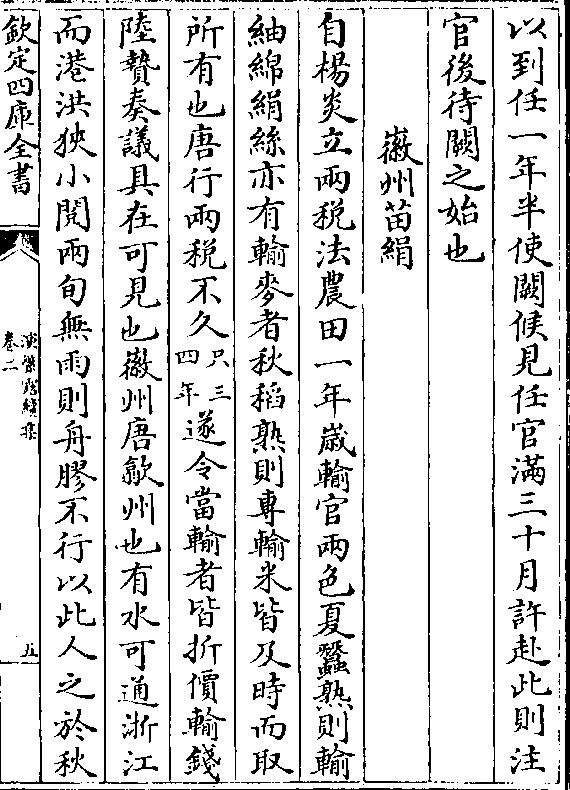 以到任一年半使闕候見任官滿三十月許赴此則注
官後待闕之始也
徽州苗絹
自楊炎立兩税法農田一年歲輸官兩色夏蠶熟則輸
紬綿絹絲亦有輸麥者秋稻熟則專輸米皆及時而取
所有也唐行兩税不久只三四年遂令當輸者皆折價輸錢
陸贄奏議具在可見也徽州唐歙州也有水可通浙江
而港洪狹小閱兩旬無雨則舟膠不行以此人之於秋
欽定四庫全書
演繁露續集
卷二
五